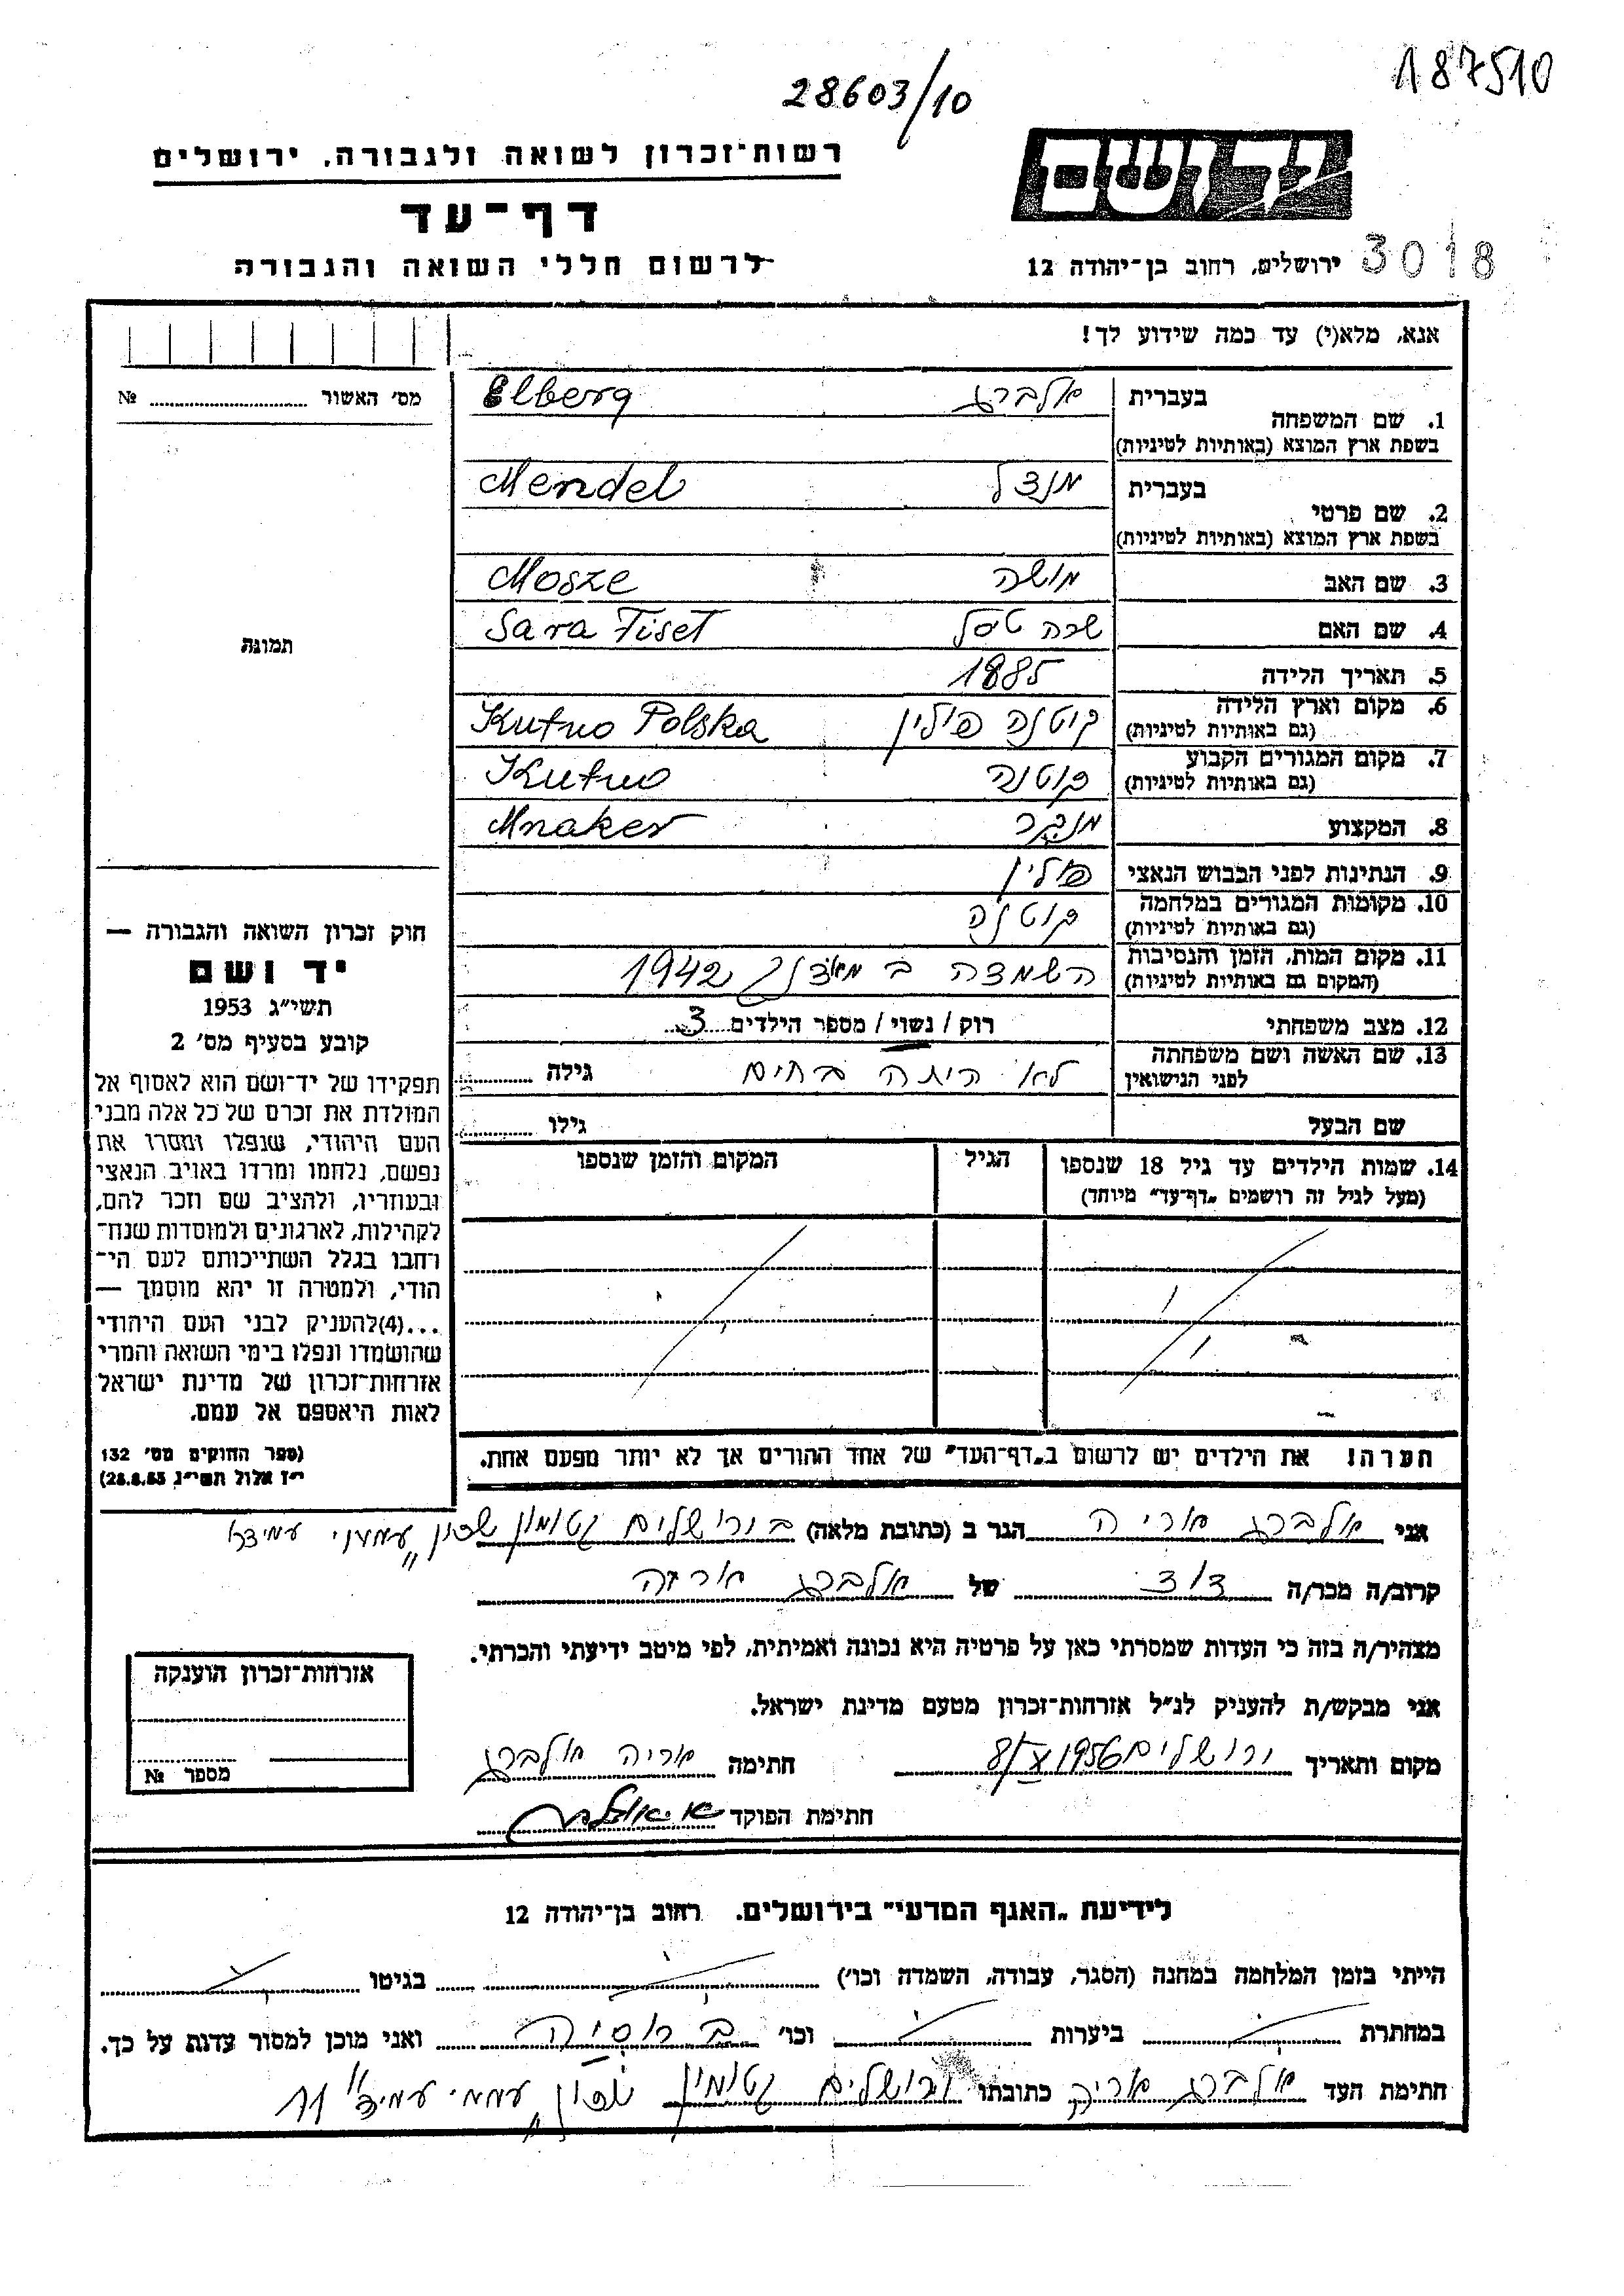 187510
28603/10
ידושם
רשות־זכרון לשואה ולגבורה, ירושלים
דף־עד
לרשום חללי השואה והגבורה
ירושלים, רחוב בן־יהודה 12
3018
אנא, מלא(י) עד כמה שידוע לך!
מס׳ האשור № 
1. שם המשפחה בעברית אלברג Elberg
בשפת ארץ המוצא (באותיות לטיניות)
2. שם פרטי בעברית מנדל Mendel
בשפת ארץ המוצא (באותיות לטיניות)
3. שם האב מושה Mosze
4. שם האם שרה טסל Sara Fiset
5. תאריך הלידה 1885
6. מקום וארץ הלידה קוטנה פולין Kutno Polska
(גם באותיות לטיניות)
7. מקום המגורים הקבוע קוטנה Kutno
(גם באותיות לטיניות)
8. המקצוע מנקר Mnaker
9. הנתינות לפני הכבוש הנאצי פולין
10. מקומות המגורים במלחמה קוטנה
(גם באותיות לטיניות)
11. מקום המות, הזמן והנסיבות השמדה ב 1942
(המקום גם באותיות לטיניות)
12. מצב משפחתי רוק / נשוי / מספר הילדים 3
13. שם האשה ושם משפחתה לא היתה בחים גילה
לפני הנישואין
שם הבעל גילו
14. שמות הילדים עד גיל 18 שנספו הגיל המקום והזמן שנספו
(מעל לגיל זה רושמים „דף־עד״ מיוחד)
הערה! את הילדים יש לרשום ב„דף־העד״ של אחד ההורים אך לא יותר מפעם אחת.
תמונה
חוק זכרון השואה והגבורה —
יד ושם
תשי״ג 1953
קובע בסעיף מס׳ 2
תפקידו של יד־ושם הוא לאסוף אל
המולדת את זכרם של כל אלה מבני
העם היהודי, שנפלו ומסרו את
נפשם, נלחמו ומרדו באויב הנאצי
ובעוזריו, ולהציב שם וזכר להם,
לקהילות, לארגונים ולמוסדות שנח־
רחבו בגלל השתייכותם לעם הי־
הודי, ולמטרה זו יהא מוסמך —
...(4)להעניק לבני העם היהודי
שהושמדו ונפלו בימי השואה והמרי
אזרחות־זכרון של מדינת ישראל
לאות היאספם אל עמם.
(ספר החוקים מס׳ 132
י״ז אלול תשי״ג, 28.8.53)
אני אלברג אריה הגר ב (כתובת מלאה) בורושלים קטומון שכון „עממי עמידר
קרוב/ה מכר/ה דוד של אלברג אריה
מצהיר/ה בזה כי העדות שמסרתי כאן על פרטיה היא נכונה ואמיתית, לפי מיטב ידיעתי והכרתי.
אני מבקש/ת להעניק לנ״ל אזרחות־זכרון מטעם מדינת ישראל.
מקום ותאריך ורושלים 8/X 1956 חתימה אריה אלברג
חתימת הפוקד
אזרחות־זכרון הוענקה
מספר №
לידיעת „האגף המדעי״ בירושלים, רחוב בן־יהודה 12
הייתי בזמן המלחמה במחנה (הסגר, עבודה, השמדה וכו׳) בגיטו
במחתרת ביערות וכו׳ ב רוסיה ואני מוכן למסור עדות על כך.
חתימת העד אלברג אריה כתובתו ורושלים קטומון שכון „עממי עמידר״ 11